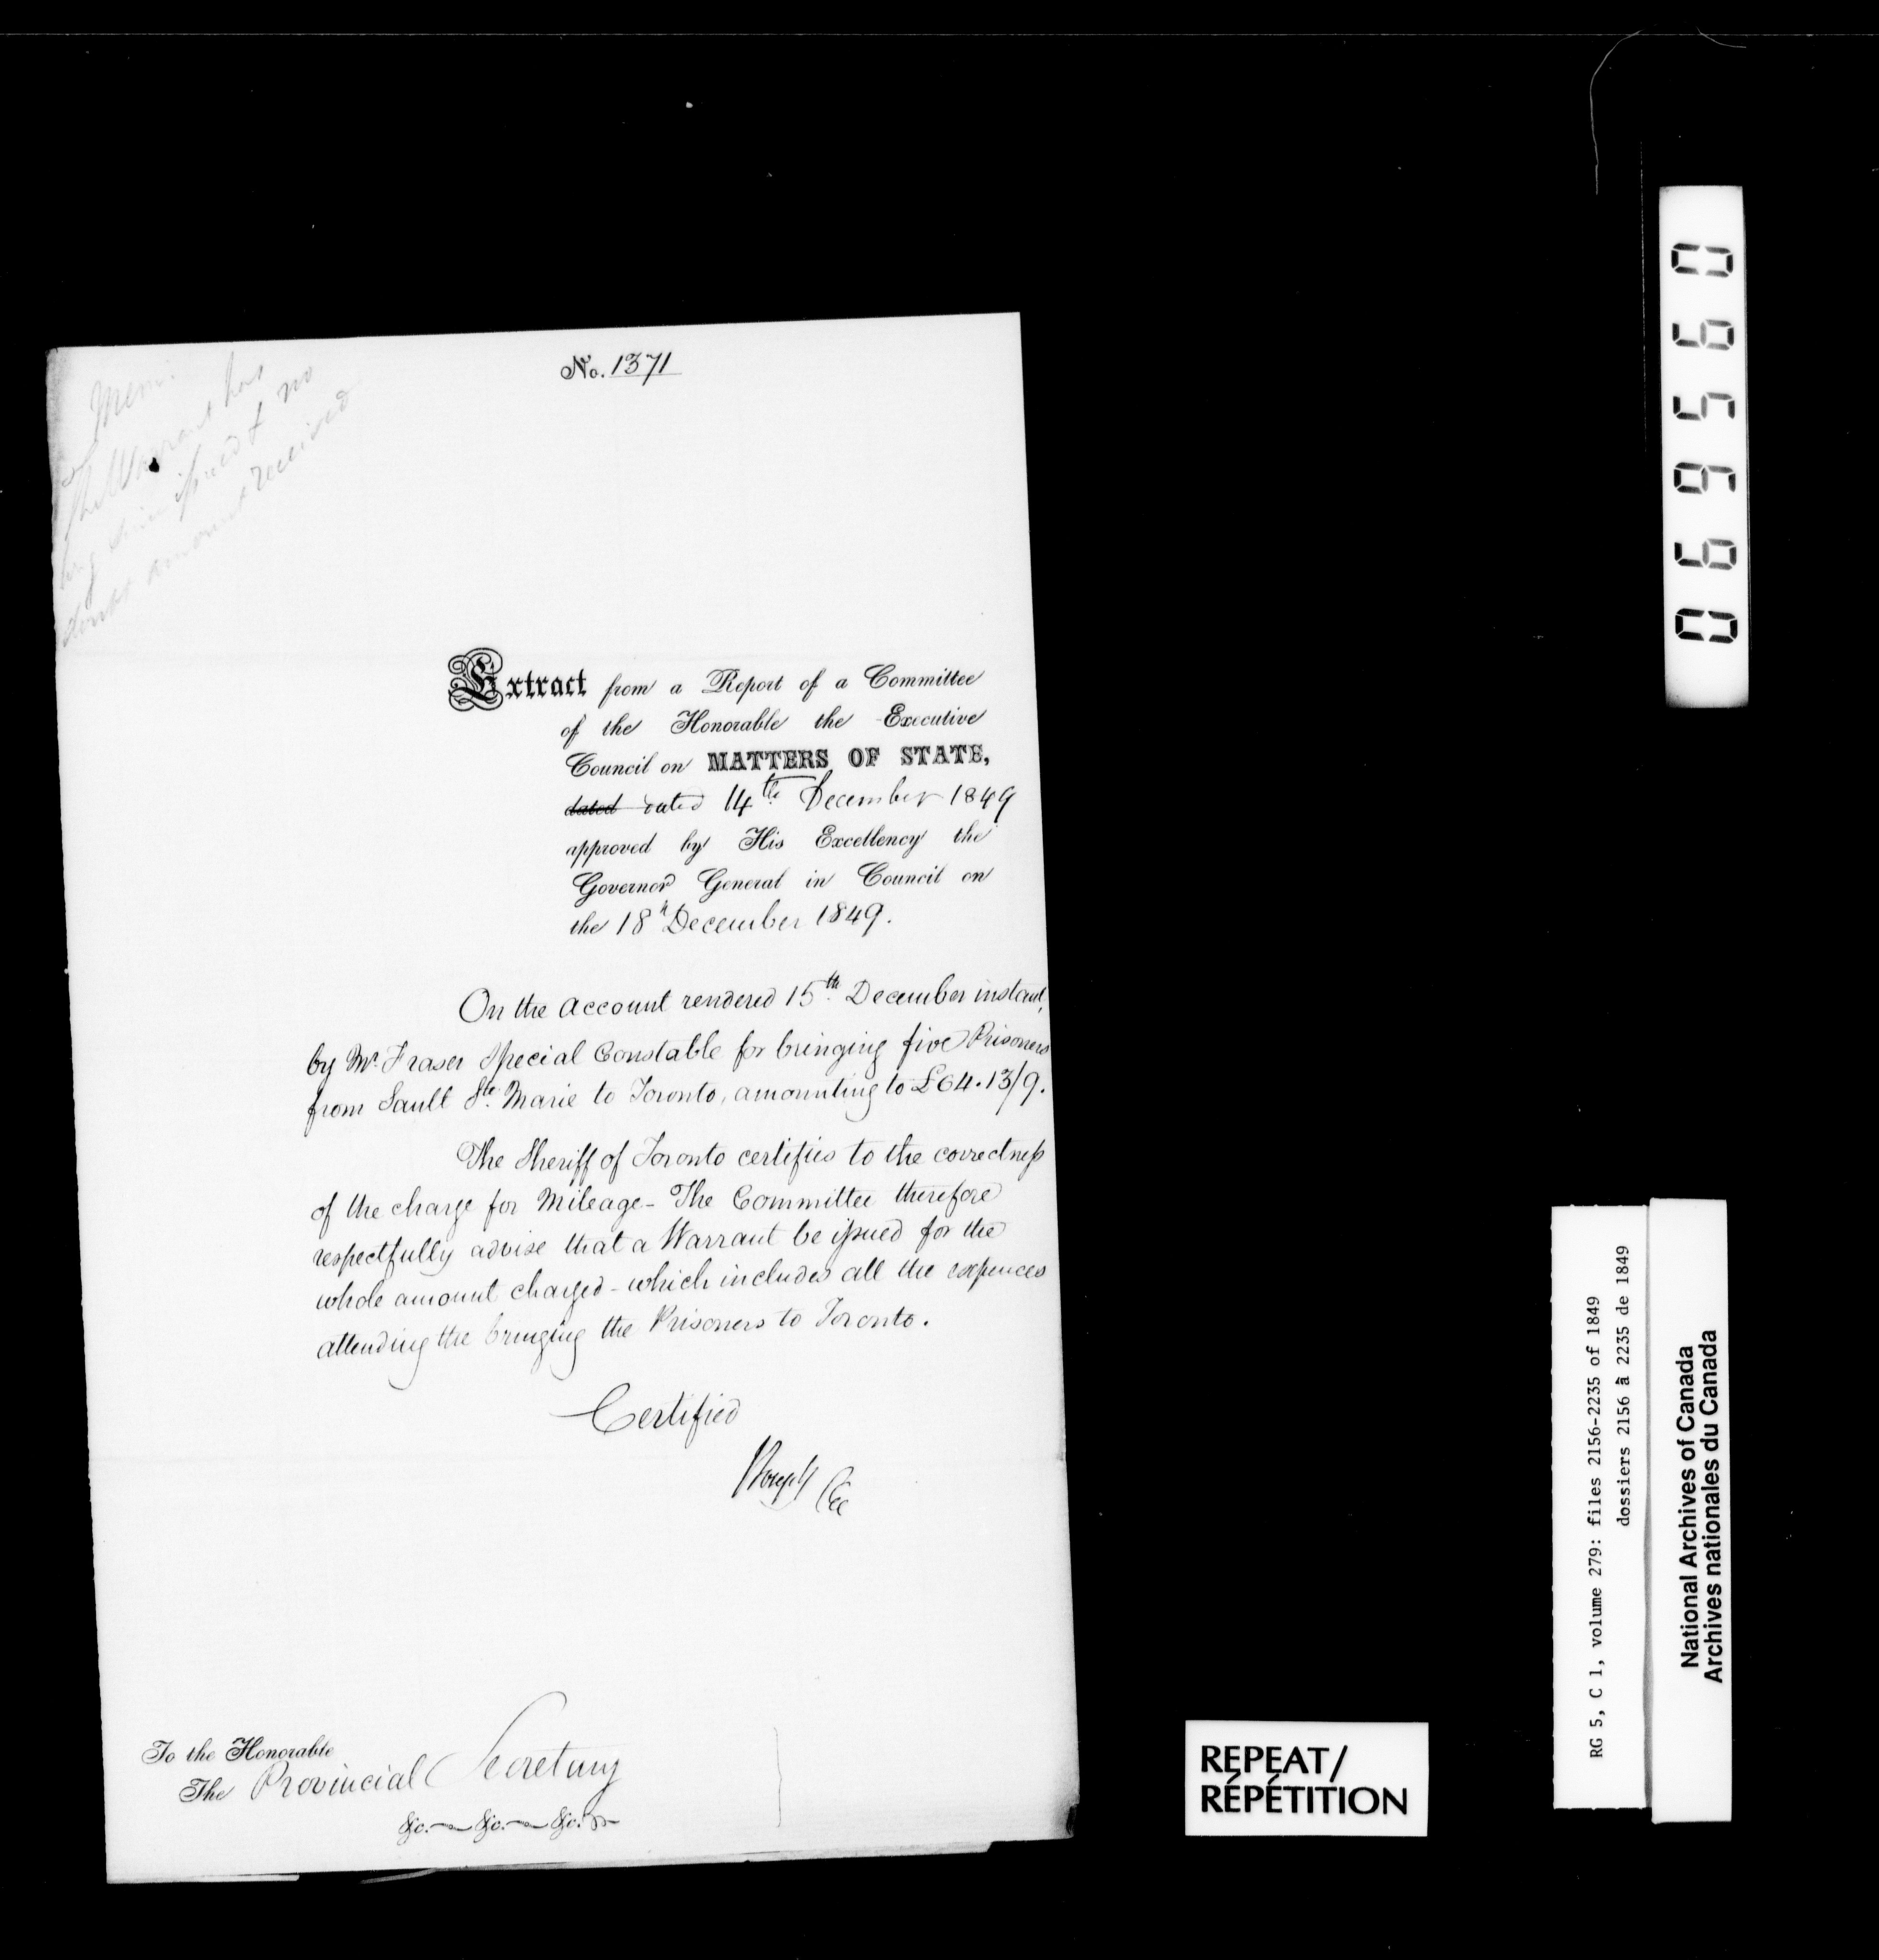 No. 1371
Mem.
The Warrant has
long since issued & no
doubt amount received
Extract from a Report of a Committee
of the Honorable the Executive
Council on MATTERS OF STATE,
dated dated 14th December 1849
approved by His Excellency the
Governor General in Council on
the 18th December 1849.
On the Account rendered 15th December instant,
by Mr. Fraser Special Constable for bringing five Prisoners
from Sault Ste. Marie to Toronto, amounting to £64.13/9.
The Sheriff of Toronto certifies to the correctness
of the charge for Mileage - The Committee therefore
respectfully advise that a Warrant be issued for the
whole amount charged - which includes all the expences
attending the bringing the Prisoners to Toronto.
Certified
To the Honorable
The Provincial Secretary
&c. &c. &c.
069560
RG 5, C 1, volume 279: files 2156-2235 of 1849
dossiers 2156 à 2235 de 1849
National Archives of Canada
Archives nationales du Canada
REPEAT/
RÉPÉTITION